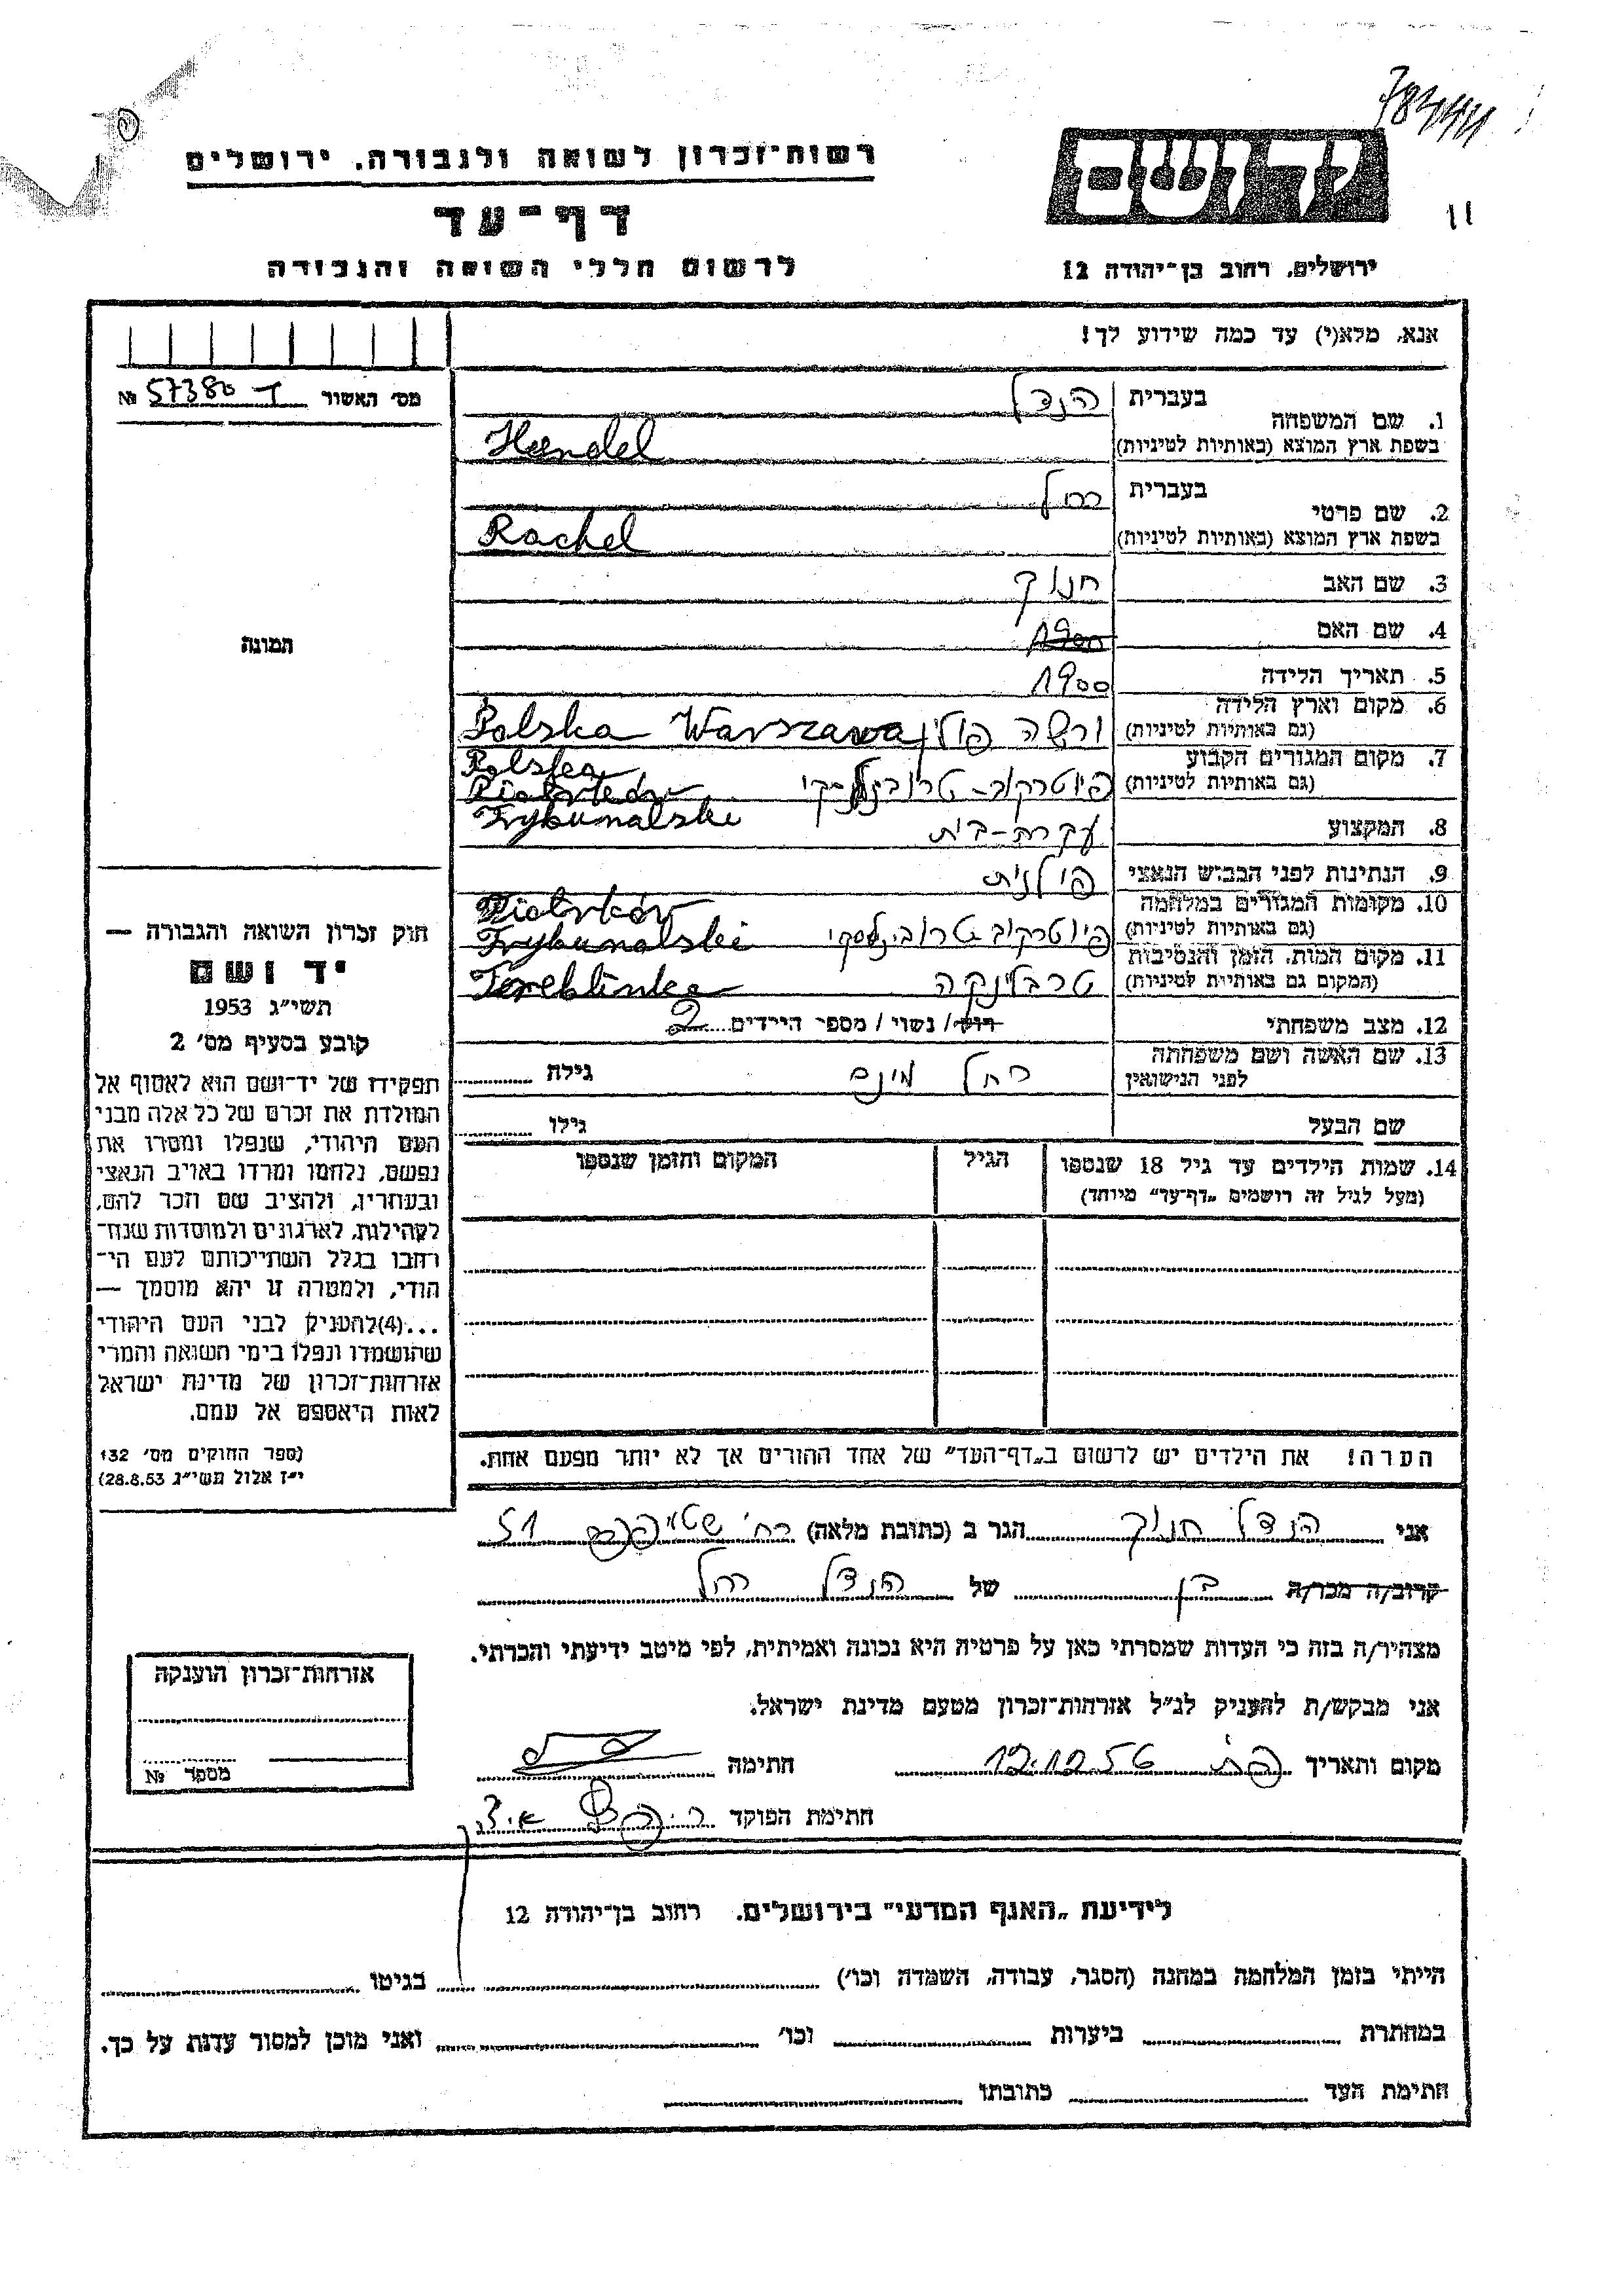 רשות־זכרון לשואה ולגבורה, ירושלים
דף־עד
לרשום חללי השואה והגבורה
ידושם
ירושלים, רחוב בן־יהודה 12
אנא, מלא(י) עד כמה שידוע לך!
מס׳ האשור 57380 №
תמונה
1. שם המשפחה בעברית הנדל
בשפת ארץ המוצא (באותיות לטיניות) Handel
2. שם פרטי בעברית רחל
בשפת ארץ המוצא (באותיות לטיניות) Rachel
3. שם האב חנוך
4. שם האם 1900
5. תאריך הלידה 1900
6. מקום וארץ הלידה (גם באותיות לטיניות) ורשה פולין Warszawa Polska
7. מקום המגורים הקבוע (גם באותיות לטיניות) פיוטרקוב-טריבונלסקי Polska
Piotrków
Trybunalski
8. המקצוע עקרת-בית
9. הנתינות לפני הכבוש הנאצי פולנית
10. מקומות המגורים במלחמה (גם באותיות לטיניות) פיוטרקוב טריבונלסקי Piotrków
Trybunalski
11. מקום המות, הזמן והנסיבות (המקום גם באותיות לטיניות) טרבלינקה Tereblinka
12. מצב משפחתי רווק / נשוי / מספר הילדים 2
13. שם האשה ושם משפחתה לפני הנישואין רחל גילה
שם הבעל גילו
14. שמות הילדים עד גיל 18 שנספו
(מעל לגיל זה רושמים „דף־עד״ מיוחד)
הגיל
המקום והזמן שנספו
הערה! את הילדים יש לרשום ב„דף־העד״ של אחד ההורים אך לא יותר מפעם אחת.
חוק זכרון השואה והגבורה —
יד ושם
תשי״ג 1953
קובע בסעיף מס׳ 2
תפקידו של יד־ושם הוא לאסוף אל
המולדת את זכרם של כל אלה מבני
העם היהודי, שנפלו ומסרו את
נפשם, נלחמו ומרדו באויב הנאצי
ובעוזריו, ולהציב שם וזכר להם,
לקהילות, לארגונים ולמוסדות שנח־
רבו בגלל השתייכותם לעם הי־
הודי, ולמטרה זו יהא מוסמך —
...(4)להעניק לבני העם היהודי
שהושמדו ונפלו בימי השואה והמרי
אזרחות־זכרון של מדינת ישראל
לאות היאספם אל עמם.
(ספר החוקים מס׳ 132
י״ז אלול תשי״ג 28.8.53)
אני הנדל חנוך הגר ב (כתובת מלאה) רח׳ 51
קרוב/ה מכר/ה בן של הנדל רחל
מצהיר/ה בזה כי העדות שמסרתי כאן על פרטיה היא נכונה ואמיתית, לפי מיטב ידיעתי והכרתי.
אני מבקש/ת להעניק לנ״ל אזרחות־זכרון מטעם מדינת ישראל.
מקום ותאריך 12.12.56 חתימה
חתימת הפוקד
אזרחות־זכרון הוענקה
מספר №
לידיעת „האגף המדעי״ בירושלים, רחוב בן־יהודה 12
הייתי בזמן המלחמה במחנה (הסגר, עבודה, השמדה וכו׳) בגיטו
במחתרת ביערות וכו׳ ואני מוכן למסור עדות על כך.
חתימת העד כתובתו